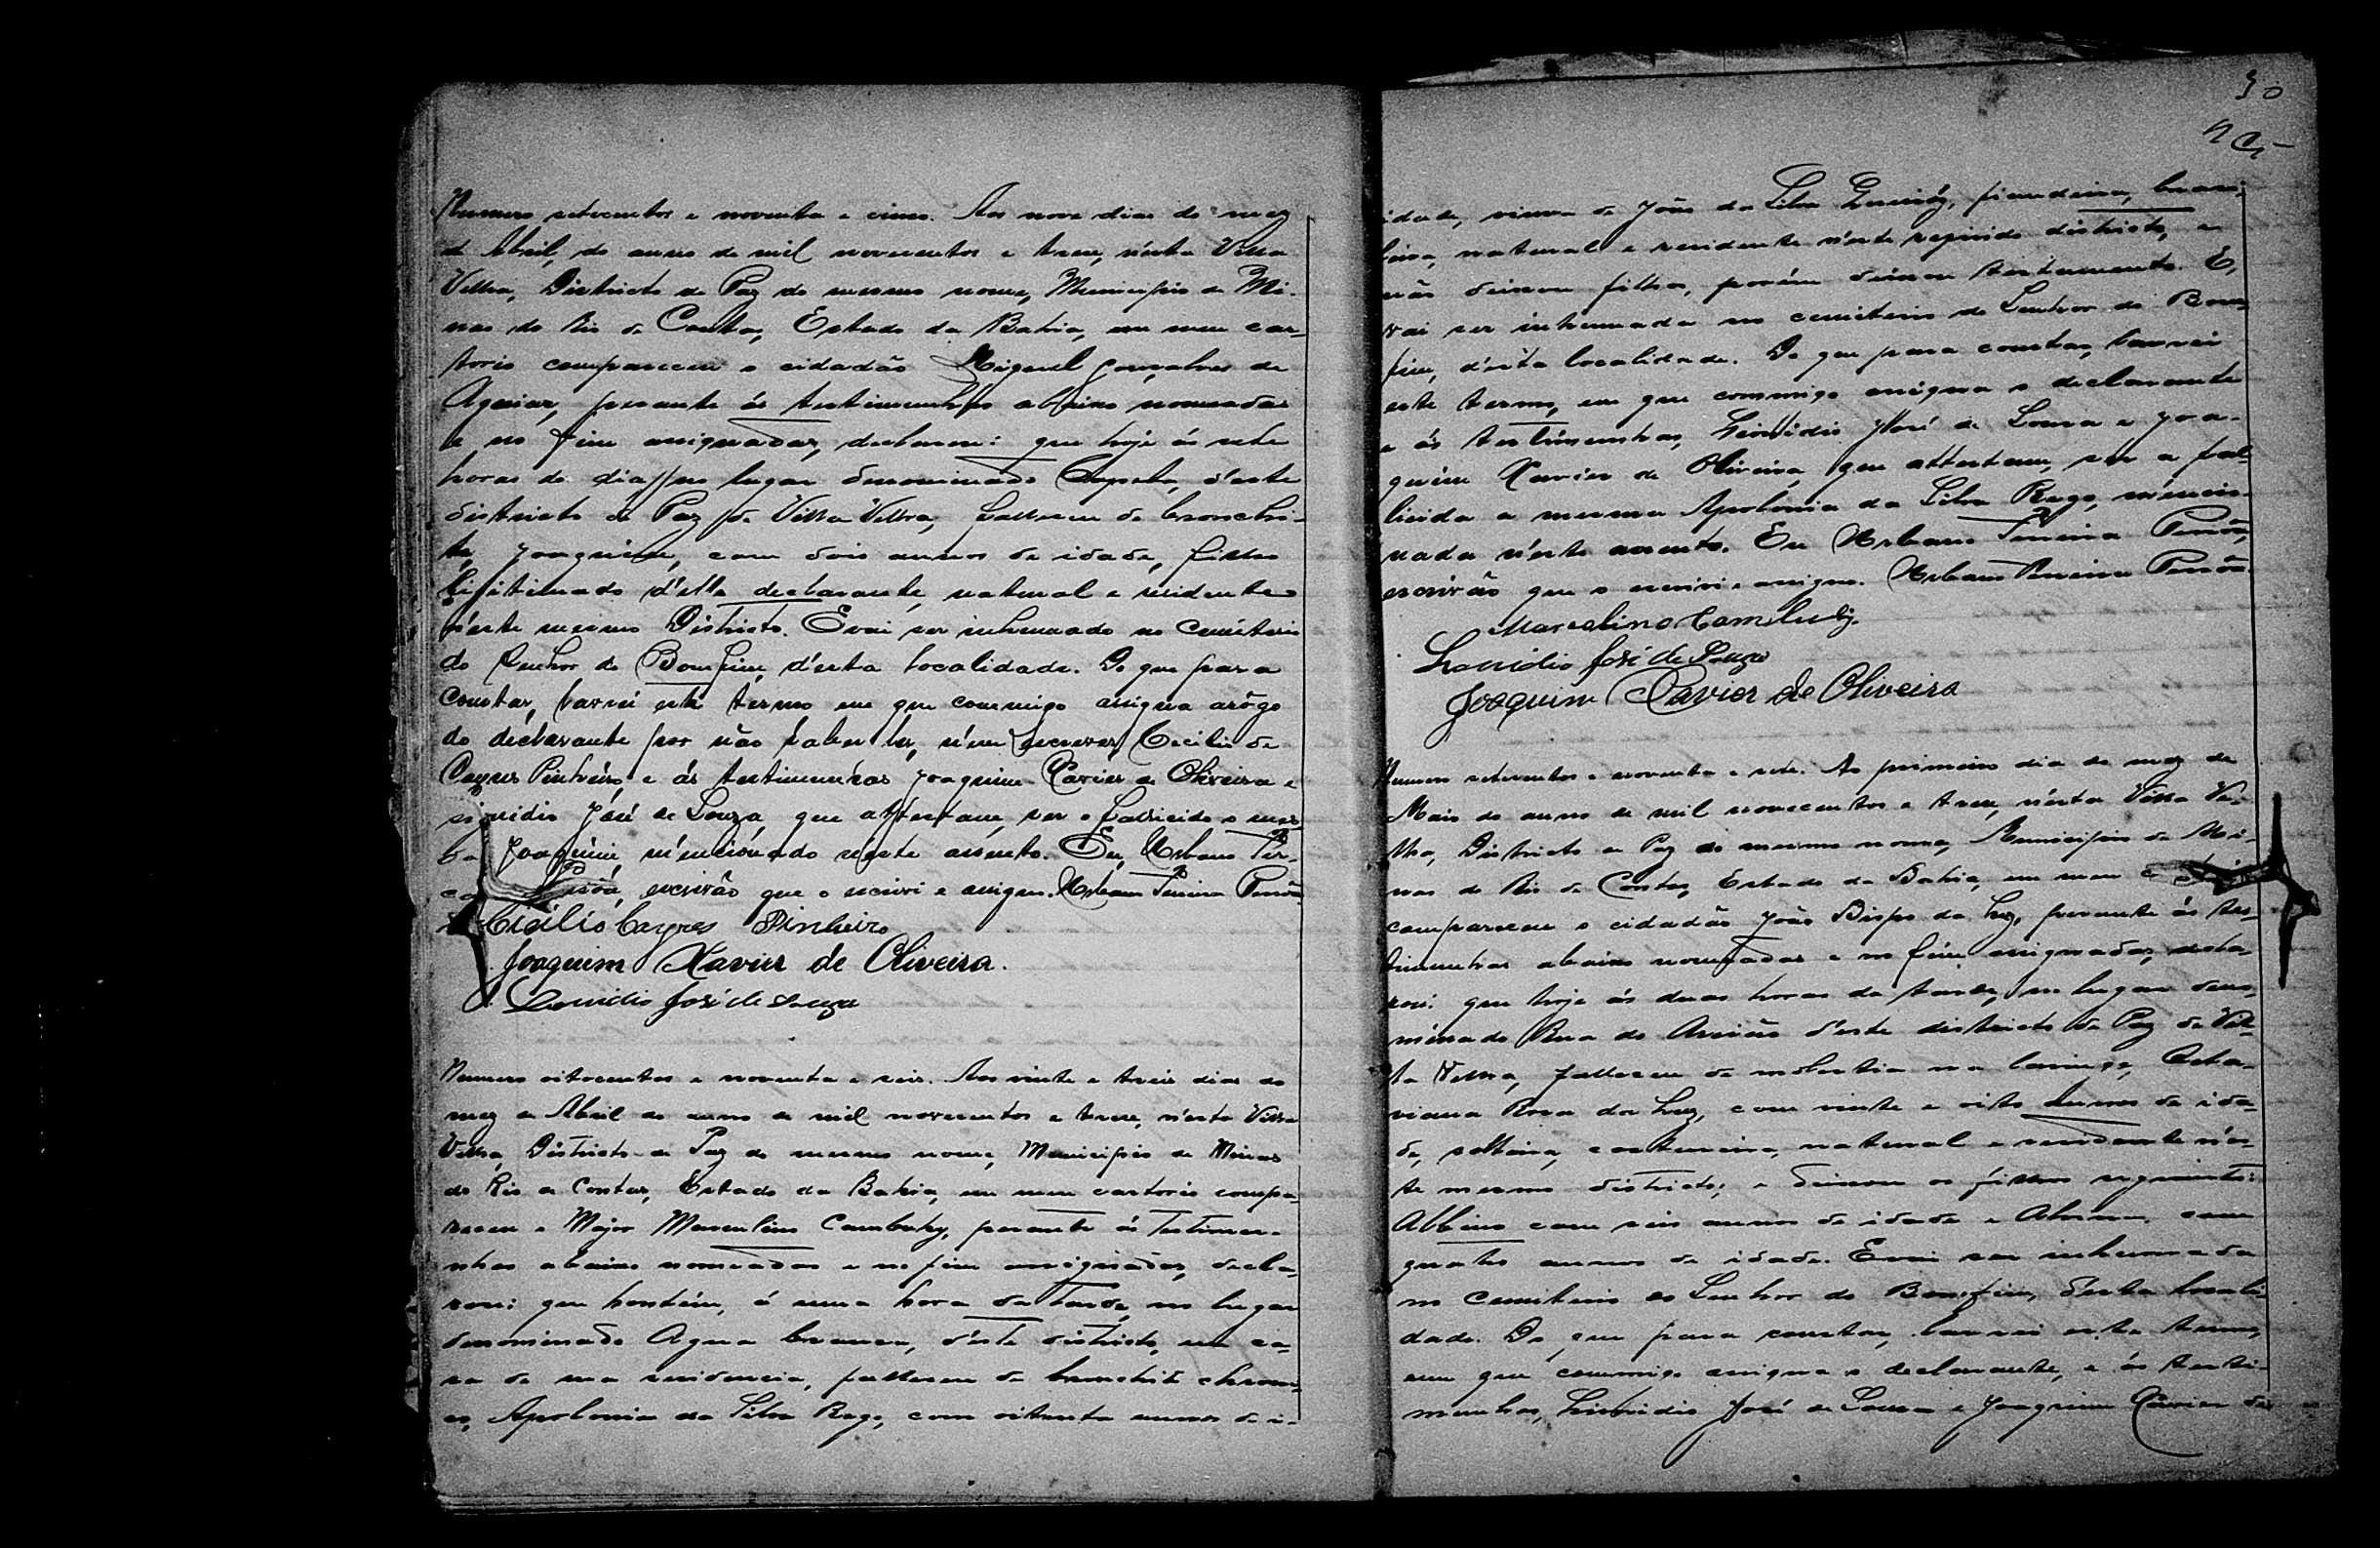 Numero setecentos e noventa e cinco. Aos nove dias do mez
de Abril, do anno de mil novecentos e treze, n'esta Villa
Velha, Districto de Paz do mesmo nome, Municipio de Mi-
nas do Rio de Contas, Estado da Bahia, em meu car-
torio compareceu o cidadão Miguel Gonçalves de
Aguiar, perante ás testimunhas abaixo nomeadas
e no fim assignadas, declarou: que hoje ás sete
horas do dia no lugar denominado Capela, d'este
districto de Paz de Villa Velha, falleceu de bronchi-
te, Joaquim, com dois annos de idade, filho
legitimado d'elle declarante, natural e residente
n'este mesmo Districto. E vai ser inhumado no Cemiterio
do Senhor do Bomfim, d'esta localidade. Do que para
constar, lavrei este termo em que commigo assigna arôgo
do declarante por não saber ler, nem escrever, Cecilio de
Cayres Pinheiro, e ás testimunhas Joaquim Xavier de Oliveira e
José de Souza, que attestam, ser o fallecido o mes-
Joaquim, mencionado n'este assento. Eu, Urbano Per-
escrivão que o escrivi e assigno. Urbano Pereira
Cicilio Cayres Pinheiro
Joaquim Xavier de Oliveira.
Leonidio José de Souza
Numero oitocentos e noventa e seis. Aos vinte e treis dias do
mez de Abril do anno de mil novecentos e treze, n'esta Villa
Velha, Districto de Paz do mesmo nome, Municipio de Minas
do Rio de Contas, Estado da Bahia, em meu cartorio compa-
receu o Major Marculino Cambuhy, perante ás testimu-
nhas abaixo nomeadas e no fim assignadas, decla-
rou: que hontém, á uma hora da tarde, no lugar
denominado Agua branca, d'este districto, em ca-
sa de sua residencia, falleceu de bronchite chroni-
ca, Apolonia da Silva Rego, com oitenta annos de i-
30
idade, viuva de João da Silva fiandeira, brasi-
leira, natural e residente n'este referido districto, e
não deixou filhos, porém deixou testamento. E,
vai ser inhumada no cemiterio do Senhor do Bom-
fim, d'esta localidade. Do que para constar, lavrei
este termo, em que commigo assigna o declarante
e ás testimunhas, Leonidio José de Souza e Joa-
quim Xavier de Oliveira, que attestam, ser a fal-
licida a mesma Apolonia da Silva Rego, mencio-
nada n'este assento. Eu Urbano Pereira
escrivão que o escrivi e assigno. Urbano Pereira
Marcolino Cambuhy.
Leonidio José de Souza
Joaquim Xavier de Oliveira
Numero setecentos e noventa e sete. Ao primeiro dia do mez de
Maio do anno de mil novecentos e treze, n'esta Villa Ve-
lha, Districto de Paz do mesmo nome, Municipio de Mi-
nas do Rio de Contas, Estado da Bahia, em meu
compareceu o cidadão João Bispo da Luz, perante ás tes-
timunhas abaixo nomeadas e no fim assignadas, decla-
rou: que hoje ás duas horas da tarde, no lugar deno-
minado Rua do Areião d'este districto de Paz de Vil-
la Velha, falleceu de molestia na laringe, Octa-
viana Rosa da Luz, com vinte e oito annos de ida-
de, solteira, costureira, natural e residente n'es-
te mesmo districto, e deixou os filhos seguintes:
Albino com seis annos de idade e com
quatro annos de idade. E vai ser inhumada
no Cemiterio do Senhor do Bomfim, desta locali-
dade. Do que para constar, lavrei este termo,
em que commigo assigna o declarante, e ás testi-
munhas, Leonidio José de Souza e Joaquim Xavier de